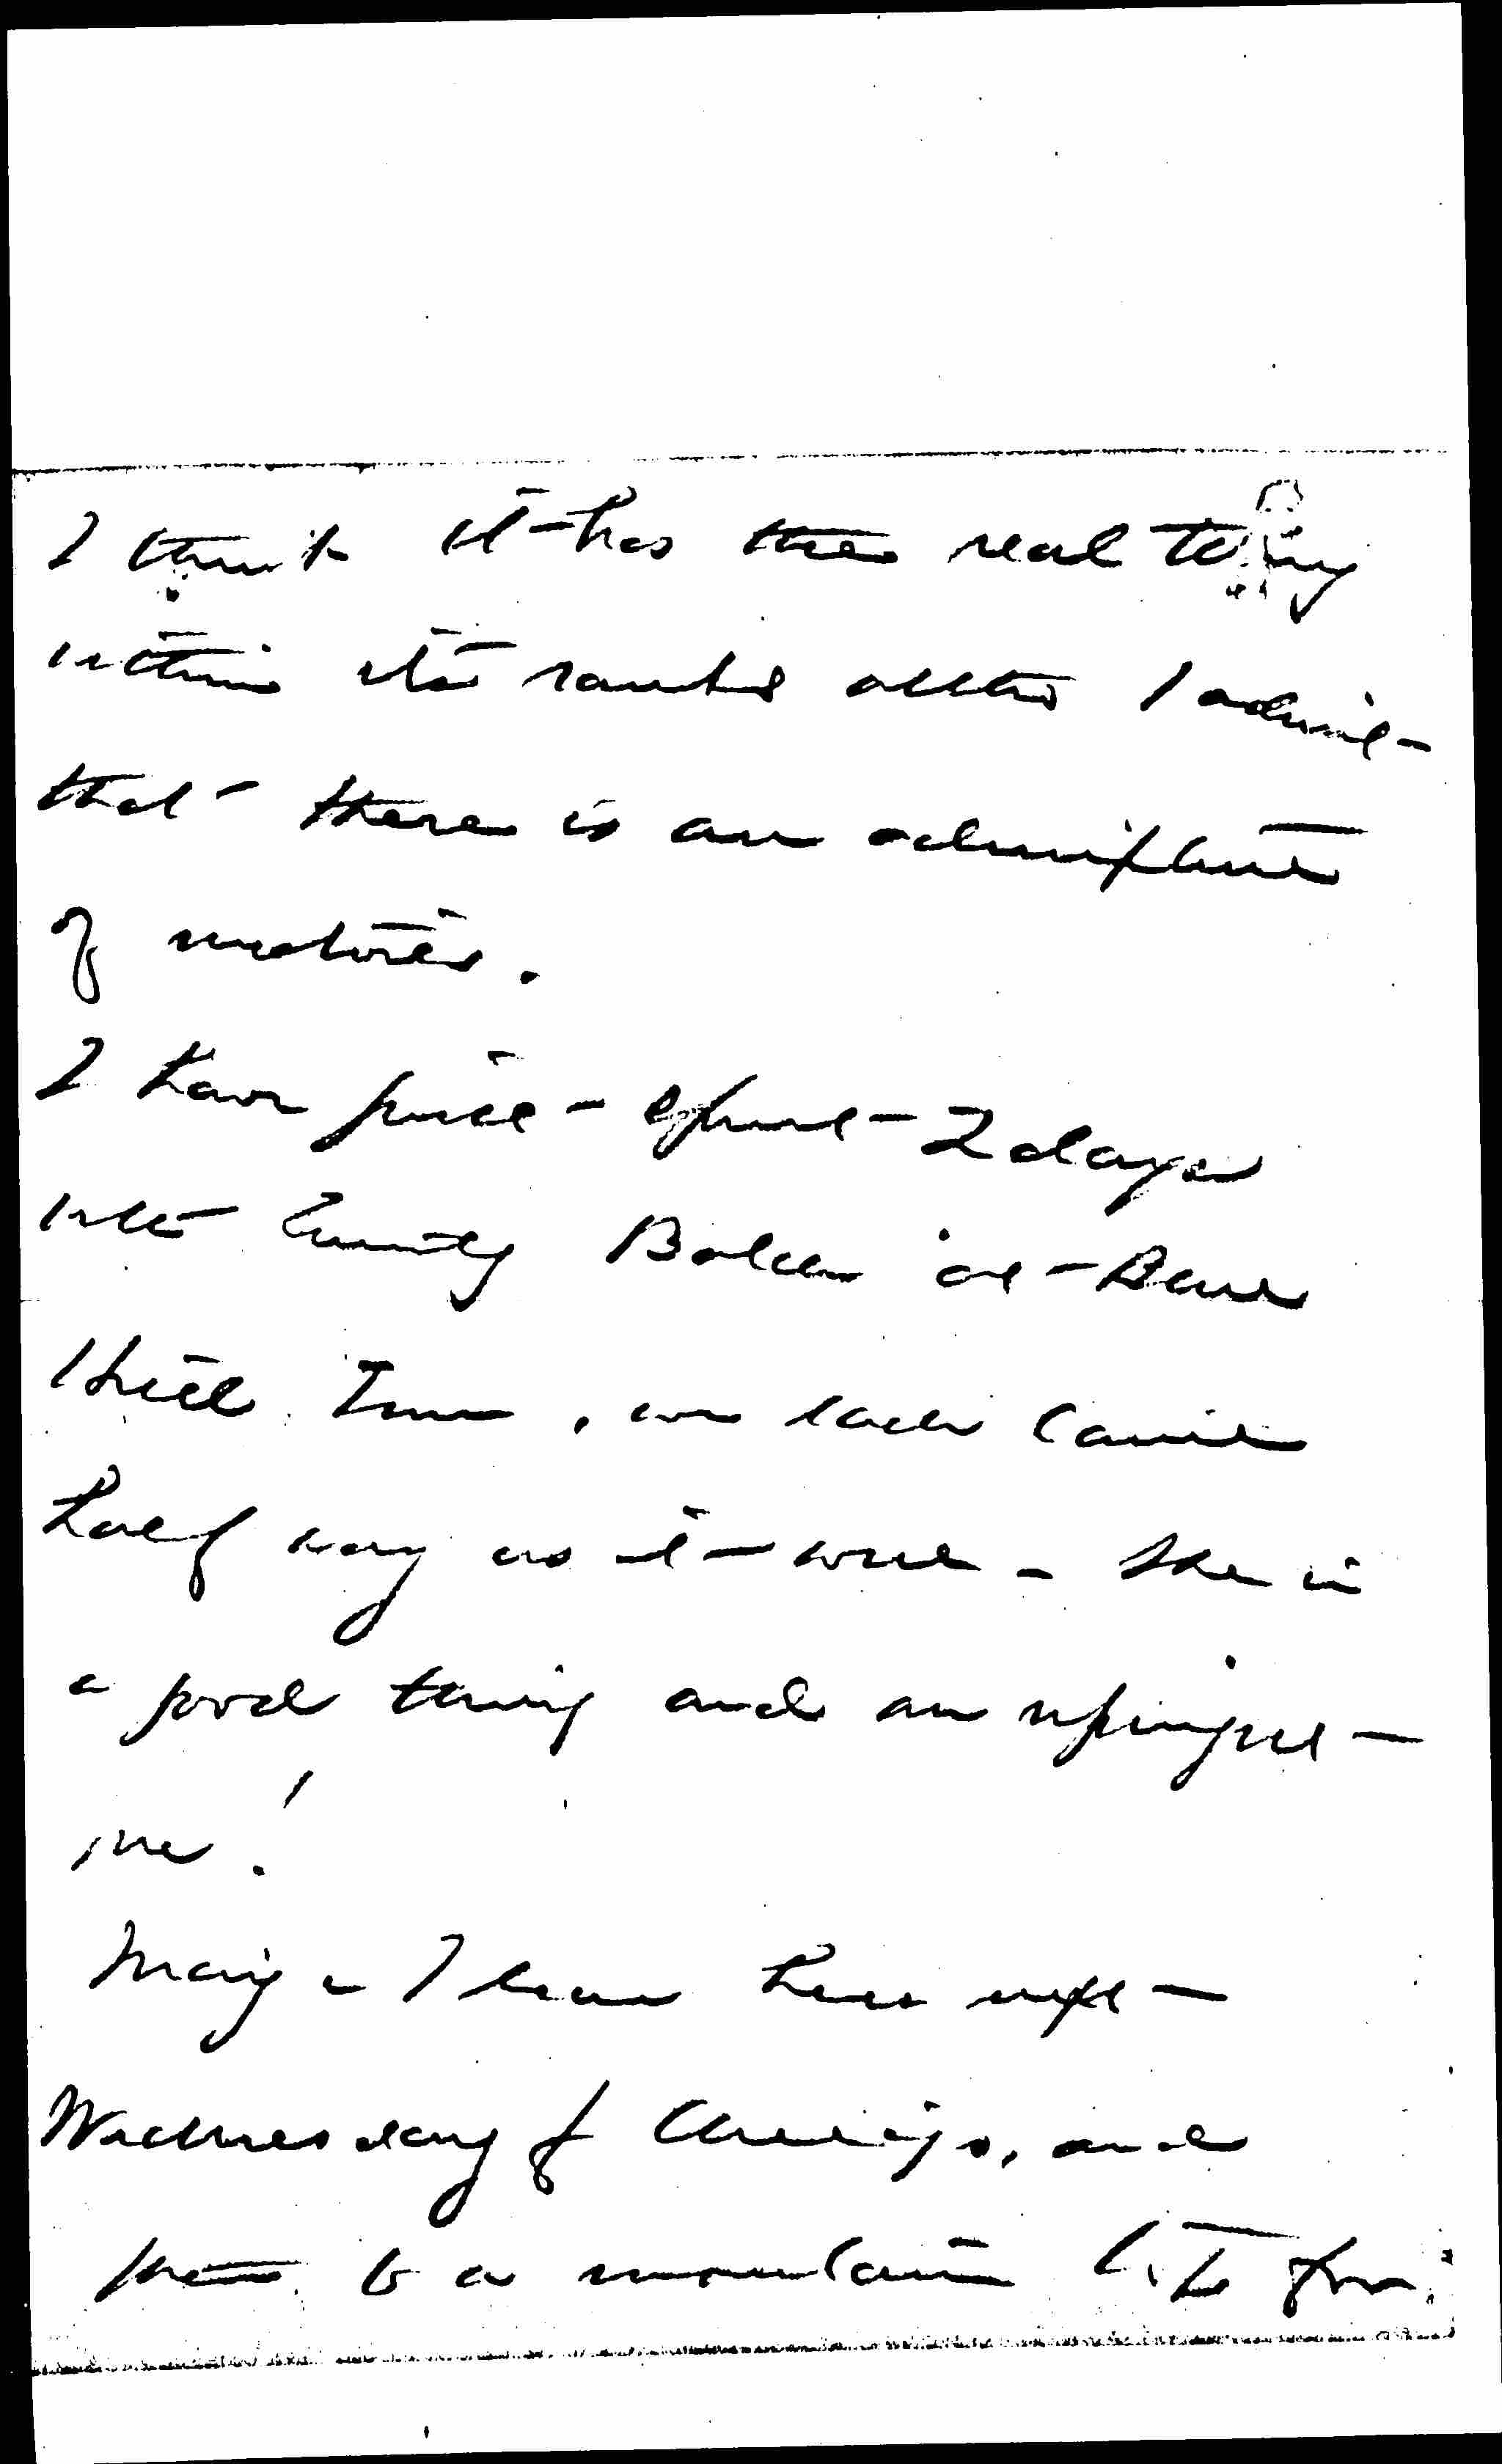 I think it has the real thing
within its ranks altho I admit
that there is an admixture
of motives.
I have just spent 2 days
with Emily Balch at Bear
Hill Inn, we each came
half way as it were - She is
a good thing and an
me!
Mary & I leave here next
Wednesday for Chicago, and
to a mountain